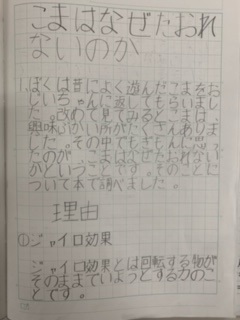 こまはなぜたおれ
ないのか
1.ぼくは昔によく遊んだこまをお
じいちゃんに返してもらいまし
た。改めて見てみると、こまは、
興味ぶかい所がたくさんありま
した。その中でもぎもんに思っ
たのが、こまはなぜたおれない
かということです。そのことに
ついて本で調べました。
理由
①ジャイロ効果
ジャイロ効果とは回転する物が
そのままでいようとする力のこ
とです。